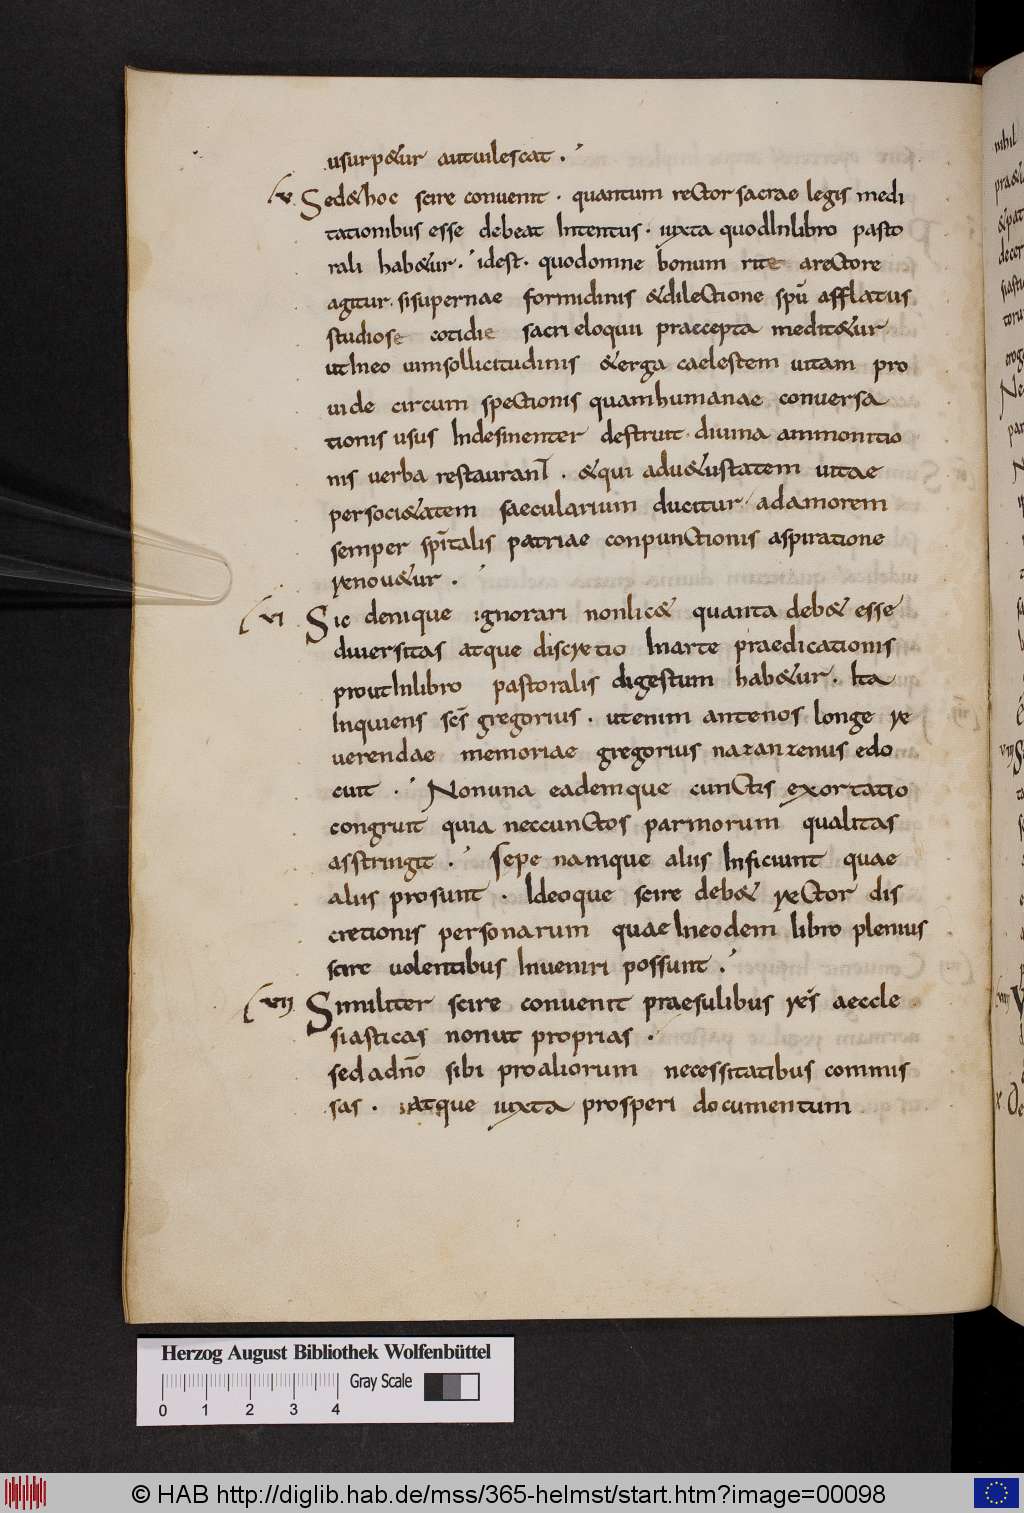 usurp&ur autuilescat .
v. Sed&hoc scire conuenit . quantum rector sacrae legis medi
tationibus esse debeat Intentus . iuxta quodInlibro pasto
rali hab&ur . idest . quodomne bonum rite arectore
agitur . sisupernae formidinis &dilectione spū afflatus
studiose cotidie sacri eloquii praecepta medit&ur
utIneo uimsollicitudinis &erga caelestem uitam pro
uide circum spectionis quamhumanae conuersa
tionis usus Indesinenter destruit . diuina ammonitio
nis uerba restaurant . &qui adu&ustatem uitae
persoci&atem saecularium ducitur . adamorem
semper spītalis patriae conpunctionis aspiratione
renou&ur .
vi Sic denique ignorari nonlic& quanta deb& esse
diuersitas atque discretio Inarte praedicationis
proutInlibro pastoralis digestum hab&ur . Ita
Inquiens scs̄ gregorius . utenim antenos longe re
uerendae memoriae gregorius nazanzenus edo
cuit . Nonuna eademque cunctis exortatio
congruit quia neccunctos parmorum qualitas
asstringit . Sepe namque aliis Inficiunt quae
aliis prosunt . Ideoque scire deb& rector dis
cretionis personarum quaeIneodem libro plenius
scire uolentibus Inueniri possunt .
vii Similiter scire conuenit praesulibus res aeccle
siasticas nonut proprias .
sed adn̄o sibi proaliorum necessitatibus commis
sas . atque iuxta prosperi documentum
Herzog August Bibliothek Wolfenbüttel
Gray Scale
0 1 2 3 4
© HAB http://diglib.hab.de/mss/365-helmst/start.htm?image=00098